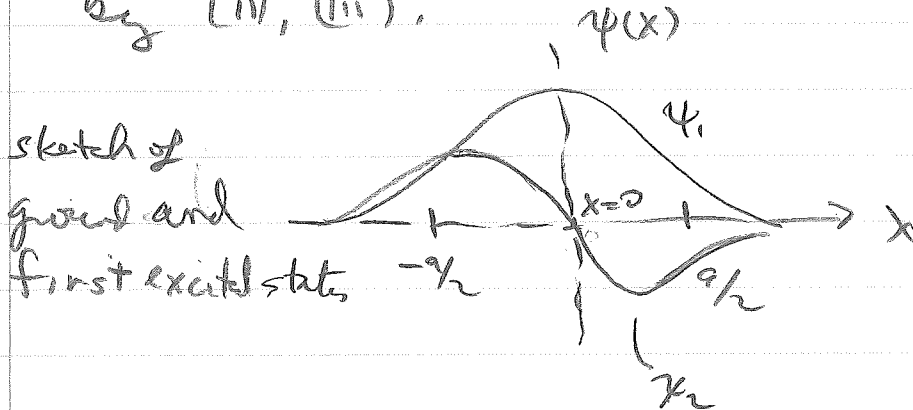 by (ii), (iii).
ψ(x)
sketch of
ground and
first excited states
ψ₁
x=0
x
-a/2
a/2
ψ₂